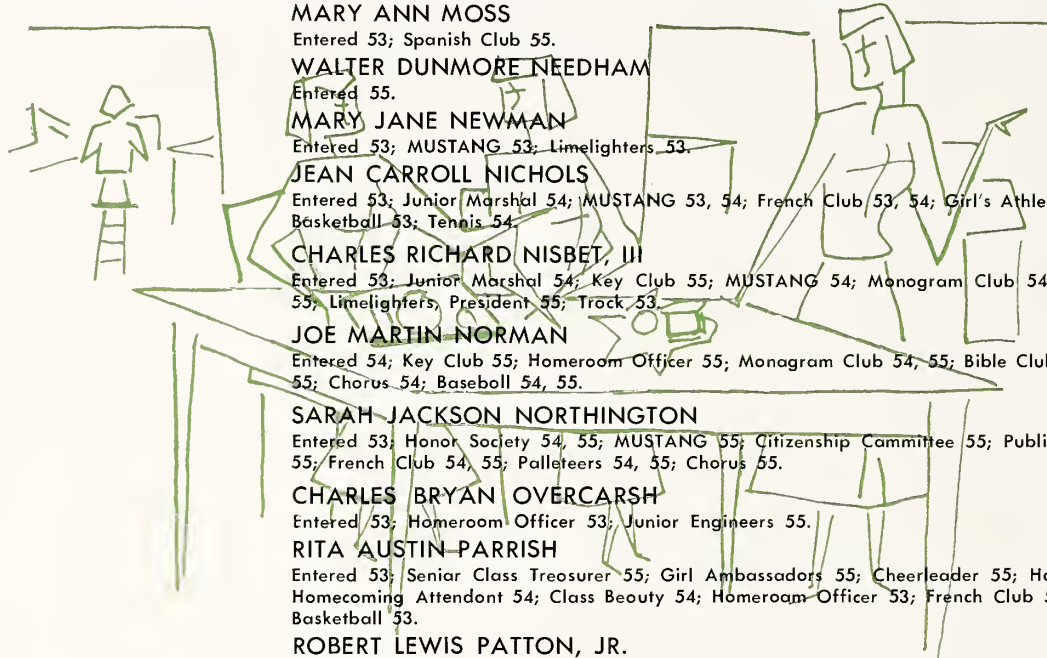 MARY ANN MOSS
Entered 53; Spanish Club 55.
WALTER DUNMORE NEEDHAM
Entered 55.
MARY JANE NEWMAN
Entered 53; MUSTANG 53; Limelighters 53.
JEAN CARROLL NICHOLS
Entered 53; Junior Marshal 54; MUSTANG 53, 54; French Club 53, 54; Girl's Athle
Basketball 53; Tennis 54.
CHARLES RICHARD NISBET, III
Entered 53; Junior Marshal 54; Key Club 55; MUSTANG 54; Monogram Club 54
55; Limelighters, President 55; Trock 53.
JOE MARTIN NORMAN
Entered 54; Key Club 55; Homeroom Officer 55; Monagram Club 54, 55; Bible Clu
55; Chorus 54; Baseboll 54, 55.
SARAH JACKSON NORTHINGTON
Entered 53; Honor Society 54, 55; MUSTANG 55; Citizenship Cammittee 55; Publi
55; French Club 54, 55; Palleteers 54, 55; Chorus 55.
CHARLES BRYAN OVERCARSH
Entered 53; Homeroom Officer 53; Junior Engineers 55.
RITA AUSTIN PARRISH
Entered 53; Seniar Class Treosurer 55; Girl Ambassadors 55; Cheerleader 55; Ho
Homecoming Attendont 54; Class Beouty 54; Homeroam Officer 53; French Club
Basketball 53.
ROBERT LEWIS PATTON, JR.